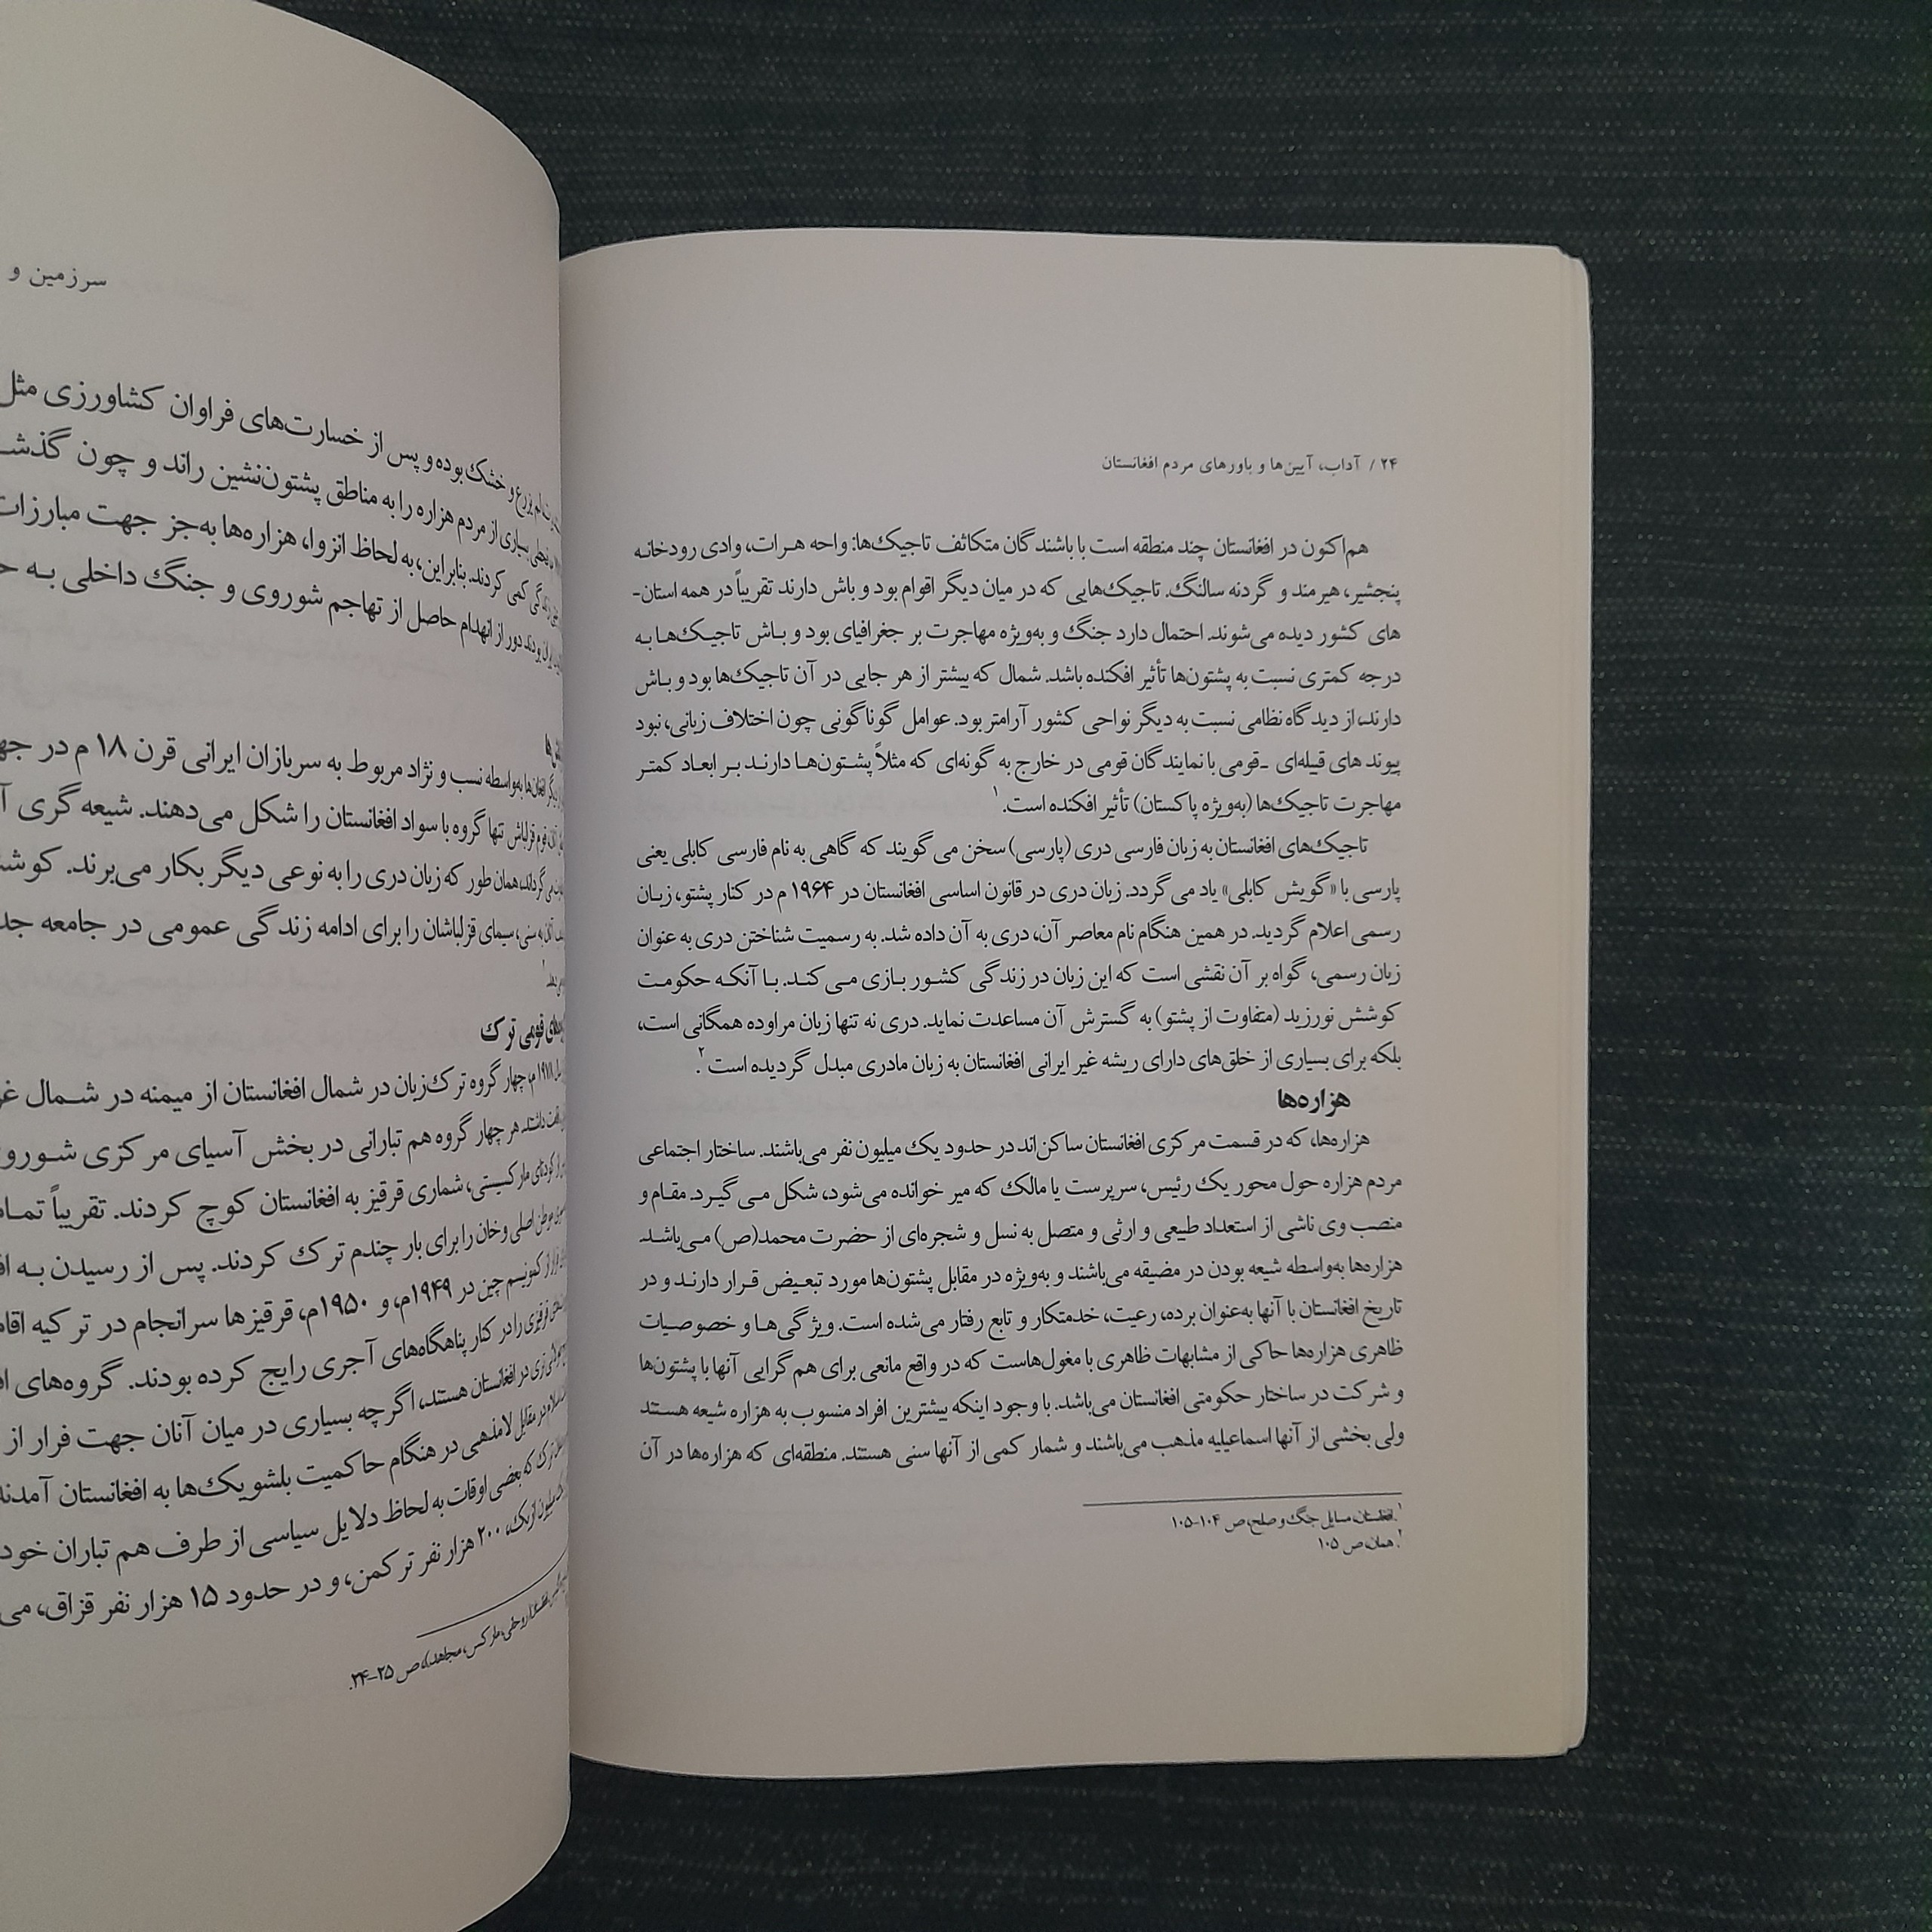 ۲۴ / آداب، آیین‌ها و باورهای مردم افغانستان
هم‌اکنون در افغانستان چند منطقه است با باشندگان متکاثف تاجیک‌ها: واحه هـرات، وادی رودخانـه
پنجشیر، هیرمند و گردنه سالنگ. تاجیک‌هایی که در میان دیگر اقوام بود و باش دارند تقریباً در همه استان-
های کشور دیده می‌شوند. احتمال دارد جنگ و به‌ویژه مهاجرت بر جغرافیای بود و بـاش تاجیـک‌هـا بـه
درجه کمتری نسبت به پشتون‌ها تأثیر افکنده باشد. شمال که بیشتر از هر جایی در آن تاجیک‌ها بود و بـاش
دارند، از دیدگاه نظامی نسبت به دیگر نواحی کشور آرامتر بود. عوامل گوناگونی چون اختلاف زبانی، نبود
پیوند های قبیله‌ای -قومی با نمایندگان قومی در خارج به گونه‌ای که مثلاً پشـتون‌هـا دارنـد بـر ابعـاد کمتـر
مهاجرت تاجیک‌ها (به‌ویژه پاکستان) تأثیر افکنده است.۱
تاجیک‌های افغانستان به زبان فارسی دری (پارسی) سخن می‌گویند که گاهی به نام فارسی کابلی یعنی
پارسی با «گویش کابلی» یاد می‌گردد. زبان دری در قانون اساسی افغانستان در ۱۹۶۴ م در کنار پشتو، زبـان
رسمی اعلام گردید. در همین هنگام نام معاصر آن، دری به آن داده شد. به رسمیت شناختن دری به عنوان
زبان رسمی، گواه بر آن نقشی است که این زبان در زندگی کشـور بـازی مـی‌کنـد. بـا آنکـه حکومـت
کوشش نورزید (متفاوت از پشتو) به گسترش آن مساعدت نماید. دری نه تنها زبان مراوده همگانی است،
بلکه برای بسیاری از خلق‌های دارای ریشه غیر ایرانی افغانستان به زبان مادری مبدل گردیده است۲.
هزاره‌ها
هزاره‌ها، که در قسمت مرکزی افغانستان ساکن‌اند در حدود یک میلیون نفر می‌باشند. ساختار اجتماعی
مردم هزاره حول محور یک رئیس، سرپرست یا مالک که میر خوانده می‌شود، شکل مـی‌گیـرد. مقـام و
منصب وی ناشی از استعداد طبیعی و ارثی و متصل به نسل و شجره‌ای از حضرت محمد(ص) مـی‌باشـد.
هزاره‌ها به‌واسطه شیعه بودن در مضیقه می‌باشند و به‌ویژه در مقابل پشتون‌ها مورد تبعـیض قـرار دارنـد و در
تاریخ افغانستان با آنها به‌عنوان برده، رعیت، خدمتکار و تابع رفتار می‌شده است. ویژگی‌هـا و خصوصـیات
ظاهری هزاره‌ها حاکی از مشابهات ظاهری با مغول‌هاست که در واقع مانعی برای هم‌گرایی آنها با پشتون‌ها
و شرکت در ساختار حکومتی افغانستان می‌باشد. با وجود اینکه بیشترین افراد منسوب به هزاره شیعه هسـتند
ولی بخشی از آنها اسماعیلیه مذهب می‌باشند و شمار کمی از آنها سنی هستند. منطقه‌ای که هزاره‌ها در آن
۱. افغانستان، مسایل جنگ و صلح، ص ۱۰۴-۱۰۵
۲. همان، ص ۱۰۵
سرزمین و
خشک بوده و پس از خسارت‌های فراوان کشاورزی مثل
بسیاری از مردم هزاره را به مناطق پشتون‌نشین راند و چون
کمی کردند. بنابراین، به لحاظ انزوا، هزاره‌ها به‌جز جهت مبارزات
بودند، دور از انهدام حاصل از تهاجم شوروی و جنگ داخلی بـه
به‌واسطه نسب و نژاد مربوط به سربازان ایرانی قرن ۱۸ م در
قوم قزلباش تنها گروه با سواد افغانستان را شکل می‌دهند. شیعه گری
همان طور که زبان دری را به نوعی دیگر بکار می‌برند.
سنی، سیمای قزلباشان را برای ادامه زندگی عمومی در جامعه
قومی ترک
چهار گروه ترک‌زبان در شمال افغانستان از میمنه در شـمال
داشتند. هر چهار گروه هم تبارانی در بخش آسیای مرکزی
کودتای مارکسیستی، شماری قرقیز به افغانستان کوچ کردند. تقریباً
اصلی وخان را برای بار چندم ترک کردند. پس از رسیدن بـه
کمونیسم چین در ۱۹۴۹م، و ۱۹۵۰م، قرقیزها سرانجام در ترکیه
را در کنار پناهگاه‌های آجری رایج کرده بودند. گروه‌های
در افغانستان هستند، اگرچه بسیاری در میان آنان جهت فرار از
در مقابل لامذهبی در هنگام حاکمیت بلشویک‌ها به افغانستان
که بعضی اوقات به لحاظ دلایل سیاسی از طرف هم تباران خود
ازبک، ۲۰۰ هزار نفر ترکمن، و در حدود ۱۵ هزار نفر قزاق،
مارکس، مجاهد)، ص ۲۵-۲۴.